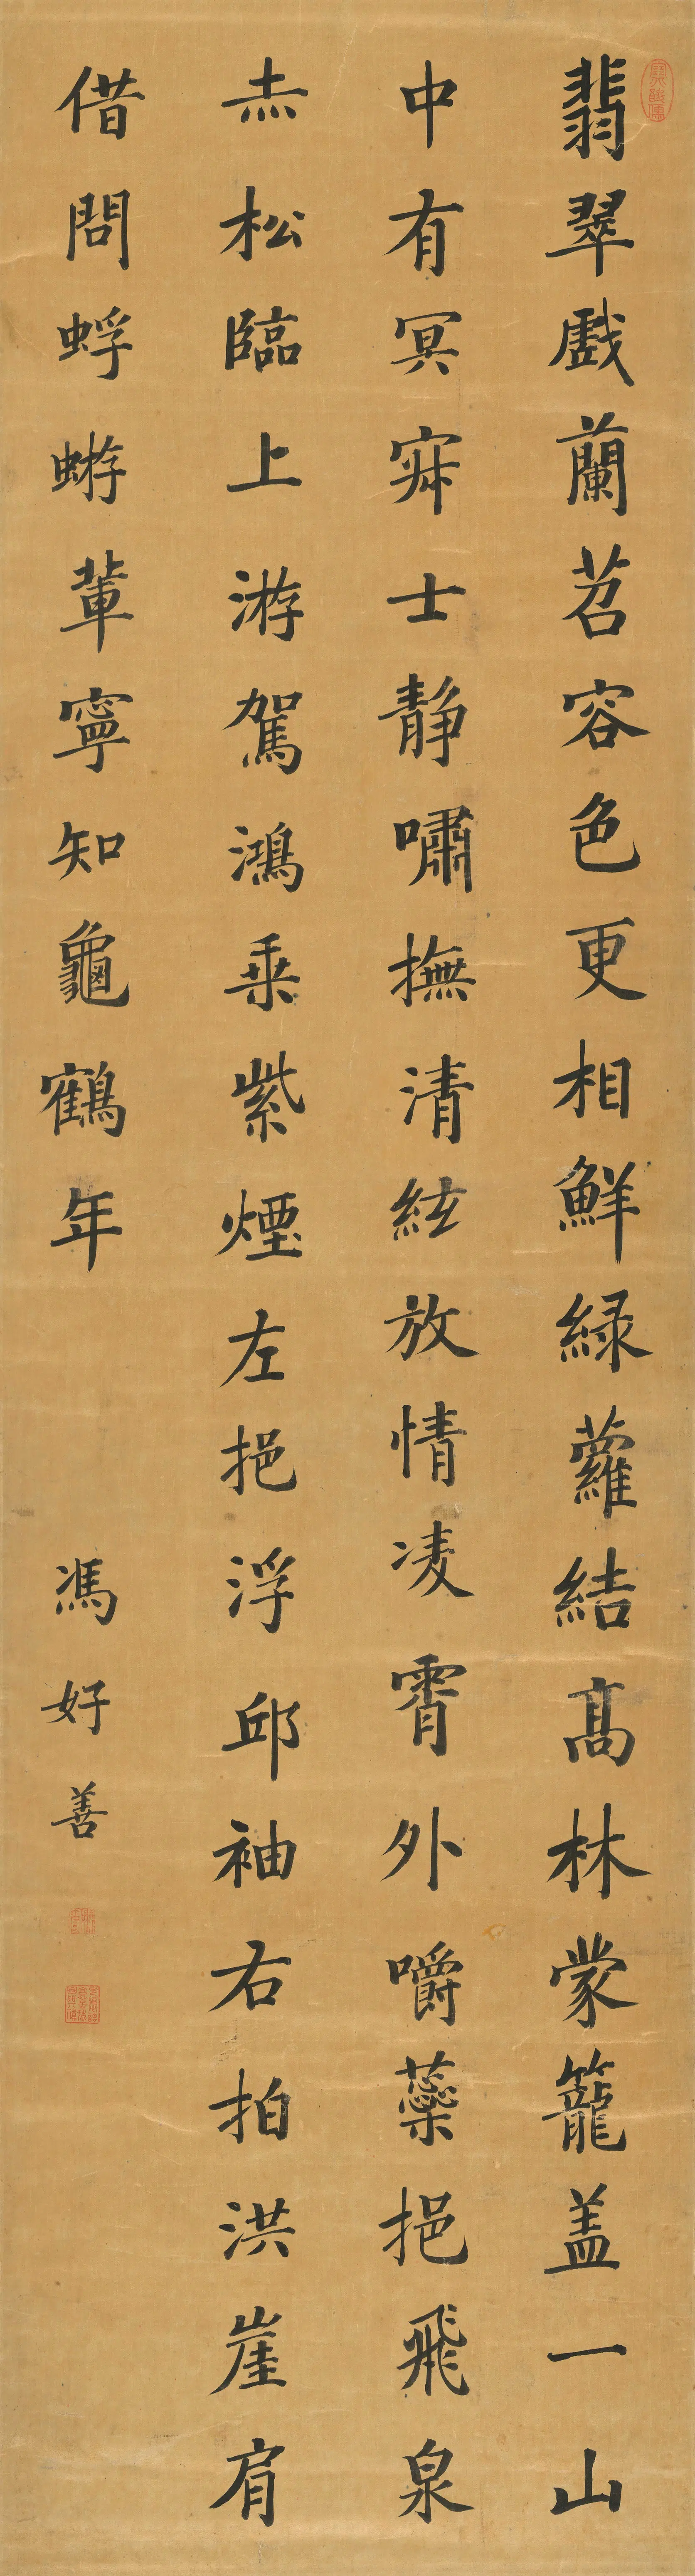 翡翠戲蘭苕容色更相鮮緑蘿結髙林蒙籠盖一山
中有冥寂士静嘯撫清絃放情凌霄外嚼蘂挹飛泉
赤松臨上游駕鴻乗紫煙左挹浮邱袖右拍洪崖肩
借問蜉蝣輩寧知龜鶴年
馮好善